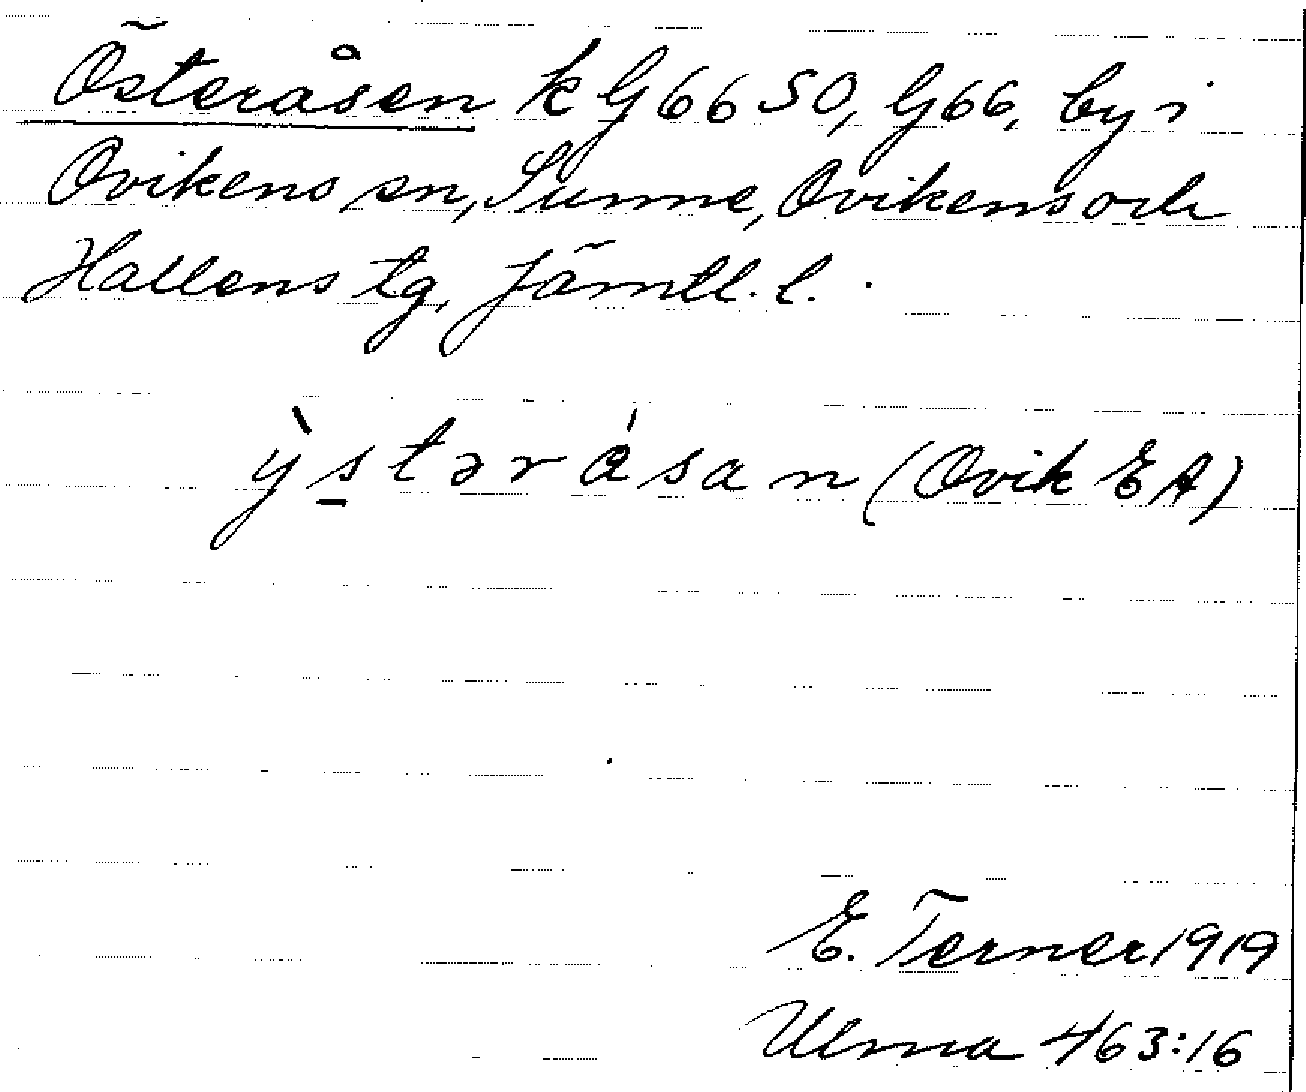 Österåsen k G 66 50, G 66, by i
Ovikens sn, Sunne, Ovikens och
Hallens tg, Jämtl. l.
ỳstərásan (Ovik EA)
E. Terner 1919
Ulma 463:16